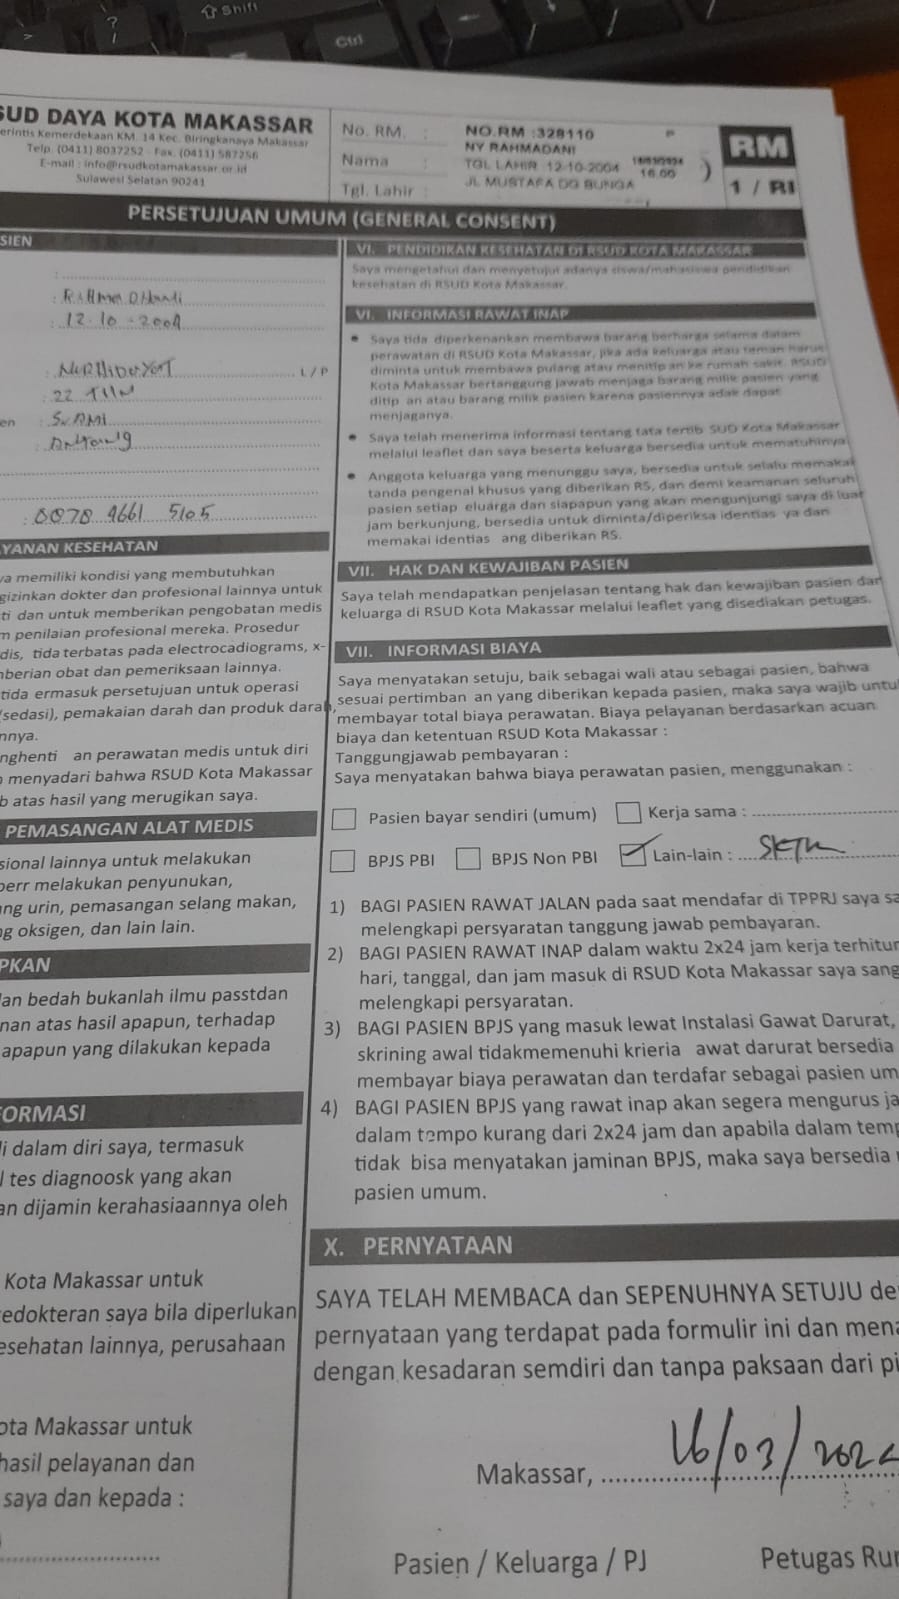 Shift
?
/
>
Ctrl
SUD DAYA KOTA MAKASSAR
erintis Kemerdekaan KM. 14 Kec. Biringkanaya Makassar
Telp. (0411) 8037252 - Fax. (0411) 587256
E-mail : info@rsudkotamakassar.or.id
Sulawesi Selatan 90241
No. RM. :
Nama :
Tgl. Lahir :
NO.RM :328110 P
NY RAHMADANI
TGL LAHIR 12-10-2004
16.00
JL MUSTAFA DG BUNGA
)
RM
1 / RI
PERSETUJUAN UMUM (GENERAL CONSENT)
SIEN
:
:
: 12-10-2004
: L / P
: 22
en : SUAMI
:
: 0878 9661 5105
YANAN KESEHATAN
ya memiliki kondisi yang membutuhkan
gizinkan dokter dan profesional lainnya untuk
ti dan untuk memberikan pengobatan medis
m penilaian profesional mereka. Prosedur
dis, tida terbatas pada electrocadiograms, x-
nberian obat dan pemeriksaan lainnya.
tida ermasuk persetujuan untuk operasi
(sedasi), pemakaian darah dan produk darah,
nnya.
nghenti an perawatan medis untuk diri
menyadari bahwa RSUD Kota Makassar
b atas hasil yang merugikan saya.
PEMASANGAN ALAT MEDIS
sional lainnya untuk melakukan
berr melakukan penyunukan,
ng urin, pemasangan selang makan,
g oksigen, dan lain lain.
PKAN
dan bedah bukanlah ilmu passtdan
nan atas hasil apapun, terhadap
apapun yang dilakukan kepada
FORMASI
di dalam diri saya, termasuk
l tes diagnoosk yang akan
an dijamin kerahasiaannya oleh
Kota Makassar untuk
edokteran saya bila diperlukan
esehatan lainnya, perusahaan
ota Makassar untuk
hasil pelayanan dan
saya dan kepada :
VI. PENDIDIKAN KESEHATAN DI RSUD KOTA MAKASSAR
Saya mengetahui dan menyetujui adanya siswa/mahasiswa pendidikan
kesehatan di RSUD Kota Makassar.
VI. INFORMASI RAWAT INAP
• Saya tida diperkenankan membawa barang berharga selama dalam
perawatan di RSUD Kota Makassar, jika ada keluarga atau teman harus
diminta untuk membawa pulang atau menitip an ke rumah sakit. RSUD
Kota Makassar bertanggung jawab menjaga barang milik pasien yang
ditip an atau barang milik pasien karena pasiennya adak dapat
menjaganya.
• Saya telah menerima informasi tentang tata tertib SUD Kota Makassar
melalui leaflet dan saya beserta keluarga bersedia untuk mematuhinya
• Anggota keluarga yang menunggu saya, bersedia untuk selalu memakai
tanda pengenal khusus yang diberikan RS, dan demi keamanan seluruh
pasien setiap eluarga dan siapapun yang akan mengunjungi saya di luar
jam berkunjung, bersedia untuk diminta/diperiksa identias ya dan
memakai identias ang diberikan RS.
VII. HAK DAN KEWAJIBAN PASIEN
Saya telah mendapatkan penjelasan tentang hak dan kewajiban pasien dan
keluarga di RSUD Kota Makassar melalui leaflet yang disediakan petugas.
VII. INFORMASI BIAYA
Saya menyatakan setuju, baik sebagai wali atau sebagai pasien, bahwa
sesuai pertimban an yang diberikan kepada pasien, maka saya wajib untu
membayar total biaya perawatan. Biaya pelayanan berdasarkan acuan
biaya dan ketentuan RSUD Kota Makassar :
Tanggungjawab pembayaran :
Saya menyatakan bahwa biaya perawatan pasien, menggunakan :
Pasien bayar sendiri (umum) Kerja sama :
BPJS PBI BPJS Non PBI Lain-lain : SKTM
1) BAGI PASIEN RAWAT JALAN pada saat mendaftar di TPPRJ saya sa
melengkapi persyaratan tanggung jawab pembayaran.
2) BAGI PASIEN RAWAT INAP dalam waktu 2x24 jam kerja terhitun
hari, tanggal, dan jam masuk di RSUD Kota Makassar saya sang
melengkapi persyaratan.
3) BAGI PASIEN BPJS yang masuk lewat Instalasi Gawat Darurat,
skrining awal tidakmemenuhi krieria awat darurat bersedia
membayar biaya perawatan dan terdafar sebagai pasien um
4) BAGI PASIEN BPJS yang rawat inap akan segera mengurus ja
dalam tempo kurang dari 2x24 jam dan apabila dalam temp
tidak bisa menyatakan jaminan BPJS, maka saya bersedia
pasien umum.
X. PERNYATAAN
SAYA TELAH MEMBACA dan SEPENUHNYA SETUJU de
pernyataan yang terdapat pada formulir ini dan mena
dengan kesadaran semdiri dan tanpa paksaan dari pi
Makassar, 16/03/2024
Pasien / Keluarga / PJ Petugas Ru